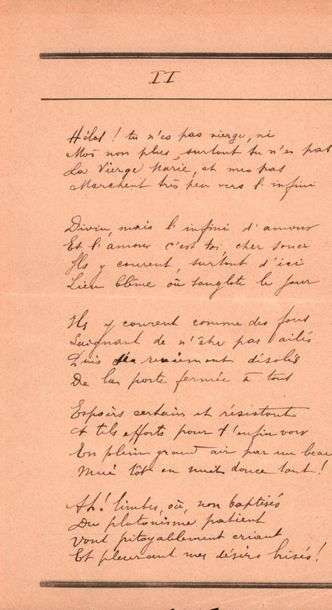 II
Hélas ! tu n'es pas vierge, ni
Moi non plus, surtout tu n'es pas
La Vierge Marie, et mes pas
Marchent très peu vers l'infini
Divin, mais l'infini d'amour
Et l'amour c'est toi, cher souci
Ils y courent, surtout d'ici
Lieu blême où sanglote le jour
Ils y courent comme des fous
Saignant de n'être pas ailés
Puis s'en reviennent désolés
De la porte fermée à tous
Espoirs certains et résistants
A tels efforts pour t'enfin voir
En plein grand air par un beau
Mué tôt en nuit douce tant !
Ah ! limbes, où, non baptisés
Du platonisme patient
Vont pitoyablement criant
Et pleurant mes désirs brisés !